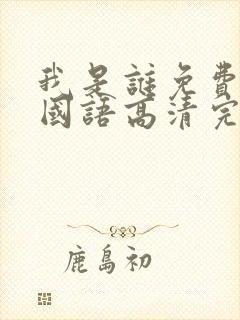 我是誰免費
國語高清完
鹿島初